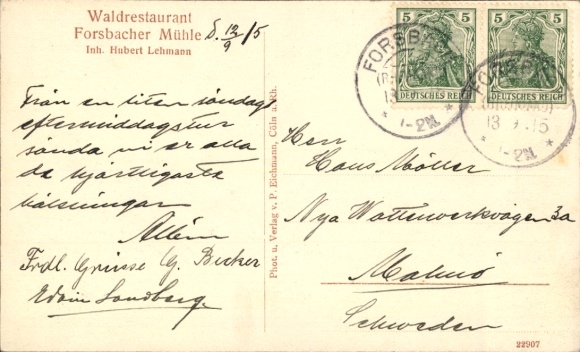 Waldrestaurant
Forsbacher Mühle
Inh. Hubert Lehmann
d. 12/9 15
Från en liten söndags
eftermiddagstur
sända vi er alla
de hjärtligaste
hälsningar
Frdl. Grüsse G. Becker
Edvin Sandberg.
Phot. u. Verlag v. P. Eichmann, Cöln a. Rh.
5 5
DEUTSCHES REICH
5 5
DEUTSCHES REICH
FORSBACH
1-2N.
FORSBACH
13.9.15
1-2N.
Herr
Hans Möller
Nya Vattenverksvägen 3a
Malmö
Schweden
22907